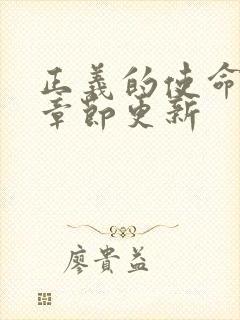 正義的使命
章節更新
廖貴益